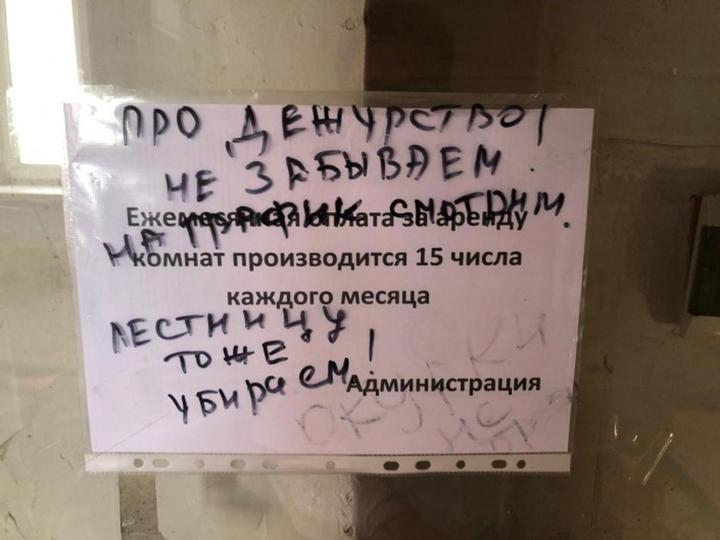 ПРО ДЕЖУРСТВО!
НЕ ЗАБЫВАЕМ.
Ежемесячная оплата за аренду
НА ГРАФИК СМОТРИМ.
комнат производится 15 числа
каждого месяца
ЛЕСТНИЦУ
ТОЖЕ !
убираем
Администрация
ОКУРКИ
НЕ